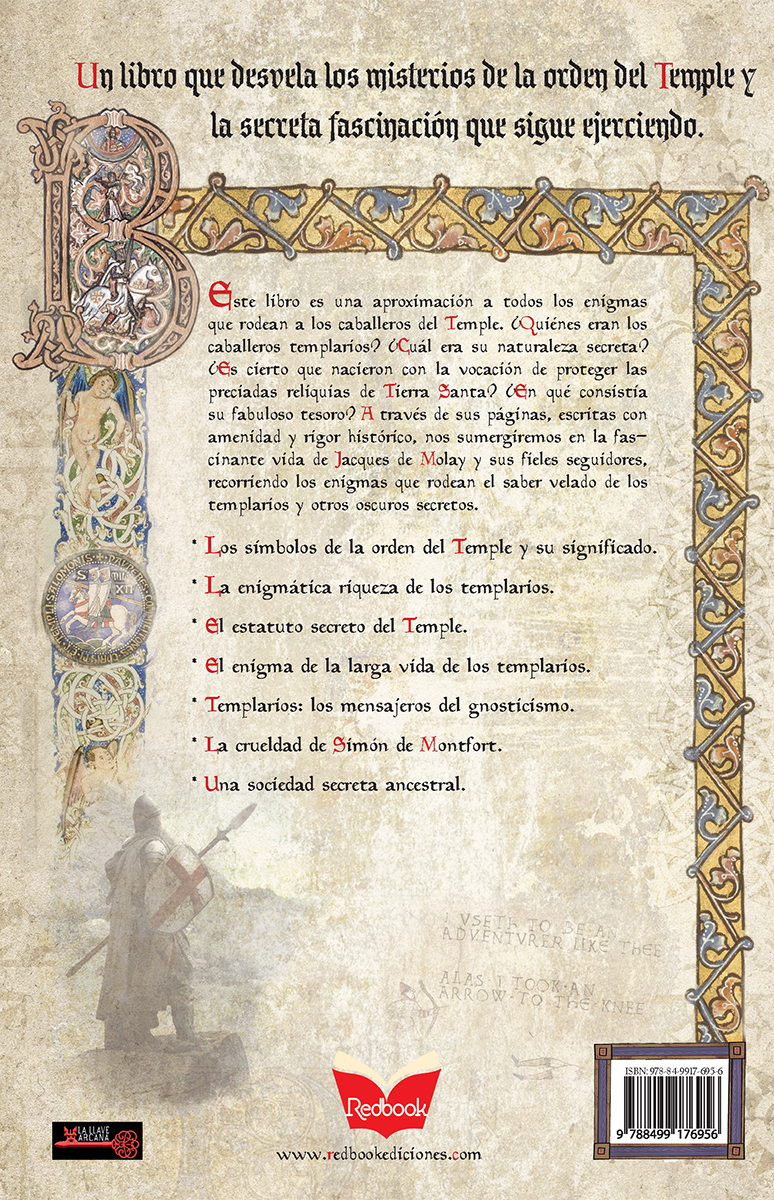 Un libro que desvela los misterios de la orden del Temple y
la secreta fascinación que sigue ejerciendo.
Este libro es una aproximación a todos los enigmas
que rodean a los caballeros del Temple. ¿Quiénes eran los
caballeros templarios? ¿Cuál era su naturaleza secreta?
¿Es cierto que nacieron con la vocación de proteger las
preciadas reliquias de Tierra Santa? ¿En qué consistía
su fabuloso tesoro? A través de sus páginas, escritas con
amenidad y rigor histórico, nos sumergiremos en la fas-
cinante vida de Jacques de Molay y sus fieles seguidores,
recorriendo los enigmas que rodean el saber velado de los
templarios y otros oscuros secretos.
* Los símbolos de la orden del Temple y su significado.
* La enigmática riqueza de los templarios.
* El estatuto secreto del Temple.
* El enigma de la larga vida de los templarios.
* Templarios: los mensajeros del gnosticismo.
* La crueldad de Simón de Montfort.
* Una sociedad secreta ancestral.
I VSETH TO BE AN
ADVENTVRER LIKE THEE
ALAS I TOOK·AN
ARROW·TO·THE·KNEE
LA LLAVE
ARCANA
Redbook
www.redbookediciones.com
ISBN: 978-84-9917-695-6
9 788499 176956